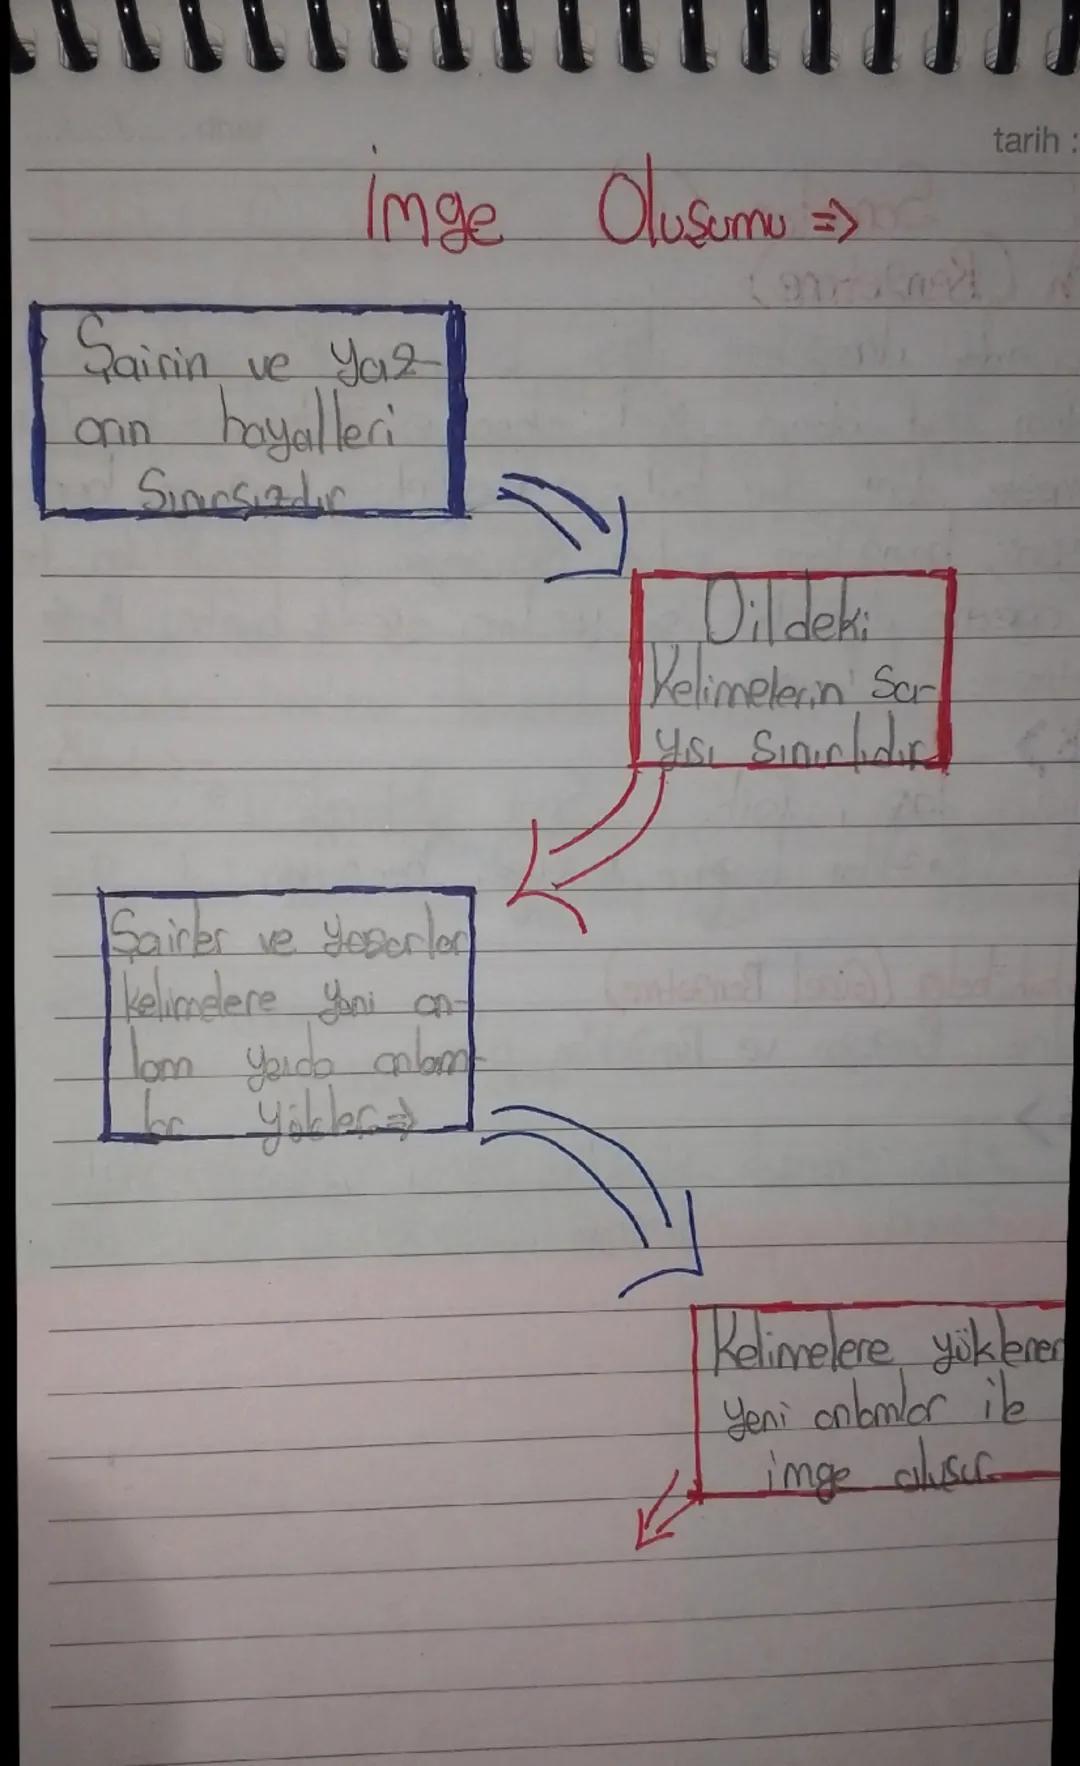 tarih :
İmge Oluşumu =>
Şairin ve yaz-
arın hayalleri
Sınırsızdır
Dildeki
Kelimelerin Sa-
yısı Sınırlıdır
Şairler ve yazarlar
kelimelere yeni an-
lam yada anlam-
lar yükler =>
Kelimelere yüklenen
yeni anlamlar ile
imge oluşur.